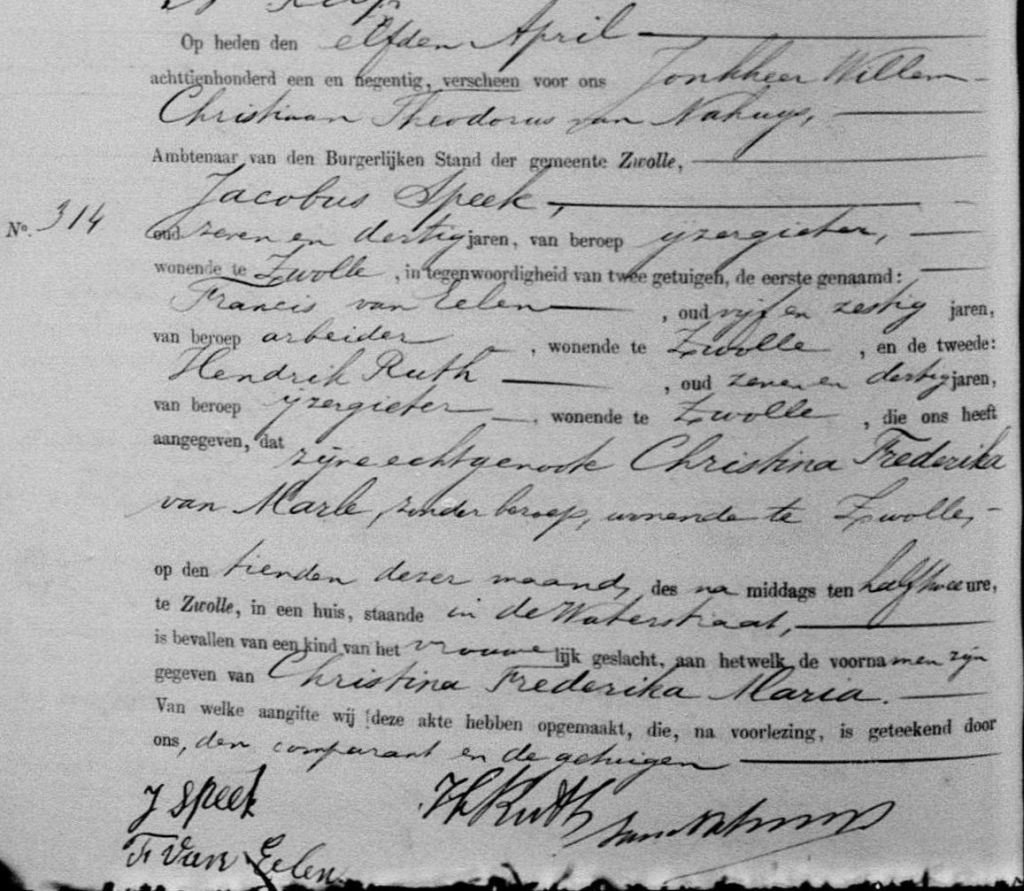 Op heden den elfden April
achttienhonderd een en negentig, verscheen voor ons Jonkheer Willem
Christiaan Theodorus van Nahuys,
Ambtenaar van den Burgerlijken Stand der gemeente Zwolle,
Jacobus Speek,
No. 314
oud zeven en dertig jaren, van beroep ijzergieter,
wonende te Zwolle, in tegenwoordigheid van twee getuigen, de eerste genaamd:
Francis van Eelen, oud vijf en zestig jaren,
van beroep arbeider, wonende te Zwolle, en de tweede:
Hendrik Ruth, oud zeven en dertig jaren,
van beroep ijzergieter, wonende te Zwolle, die ons heeft
aangegeven, dat zijne echtgenoote Christina Frederika
van Marle, zonder beroep, wonende te Zwolle,
op den tienden dezer maand, des na middags ten half twee ure,
te Zwolle, in een huis, staande in de Waterstraat,
is bevallen van een kind van het vrouwelijk geslacht, aan hetwelk de voornamen zijn
gegeven van Christina Frederika Maria.
Van welke aangifte wij deze akte hebben opgemaakt, die, na voorlezing, is geteekend door
ons, den comparant en de getuigen
J Speek
H Ruth
F. van Eelen